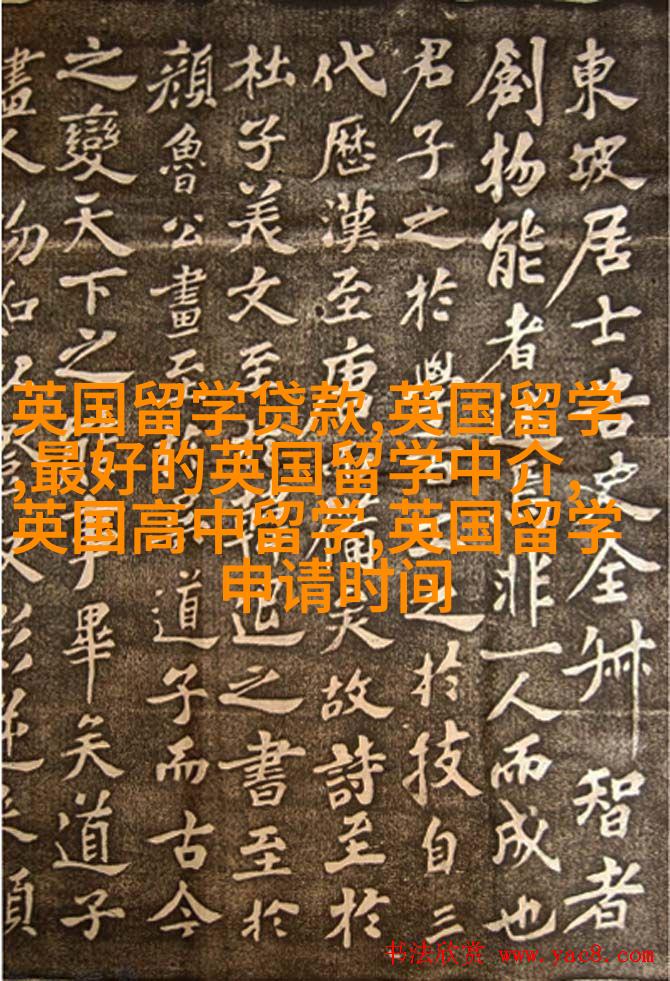 東坡居士史全叔 智者
創物能者非一人而成也
君子之於學之於技自三
代歷漢至唐備矣故詩至於
杜子美文至退之書至於
顔魯公畫至道子而古今
之變天下之事畢矣道子
畫人物如
英国留学贷款,英国留学
,最好的英国留学中介,
英国高中留学,英国留学
申请时间
书法欣赏 www.yac8.com